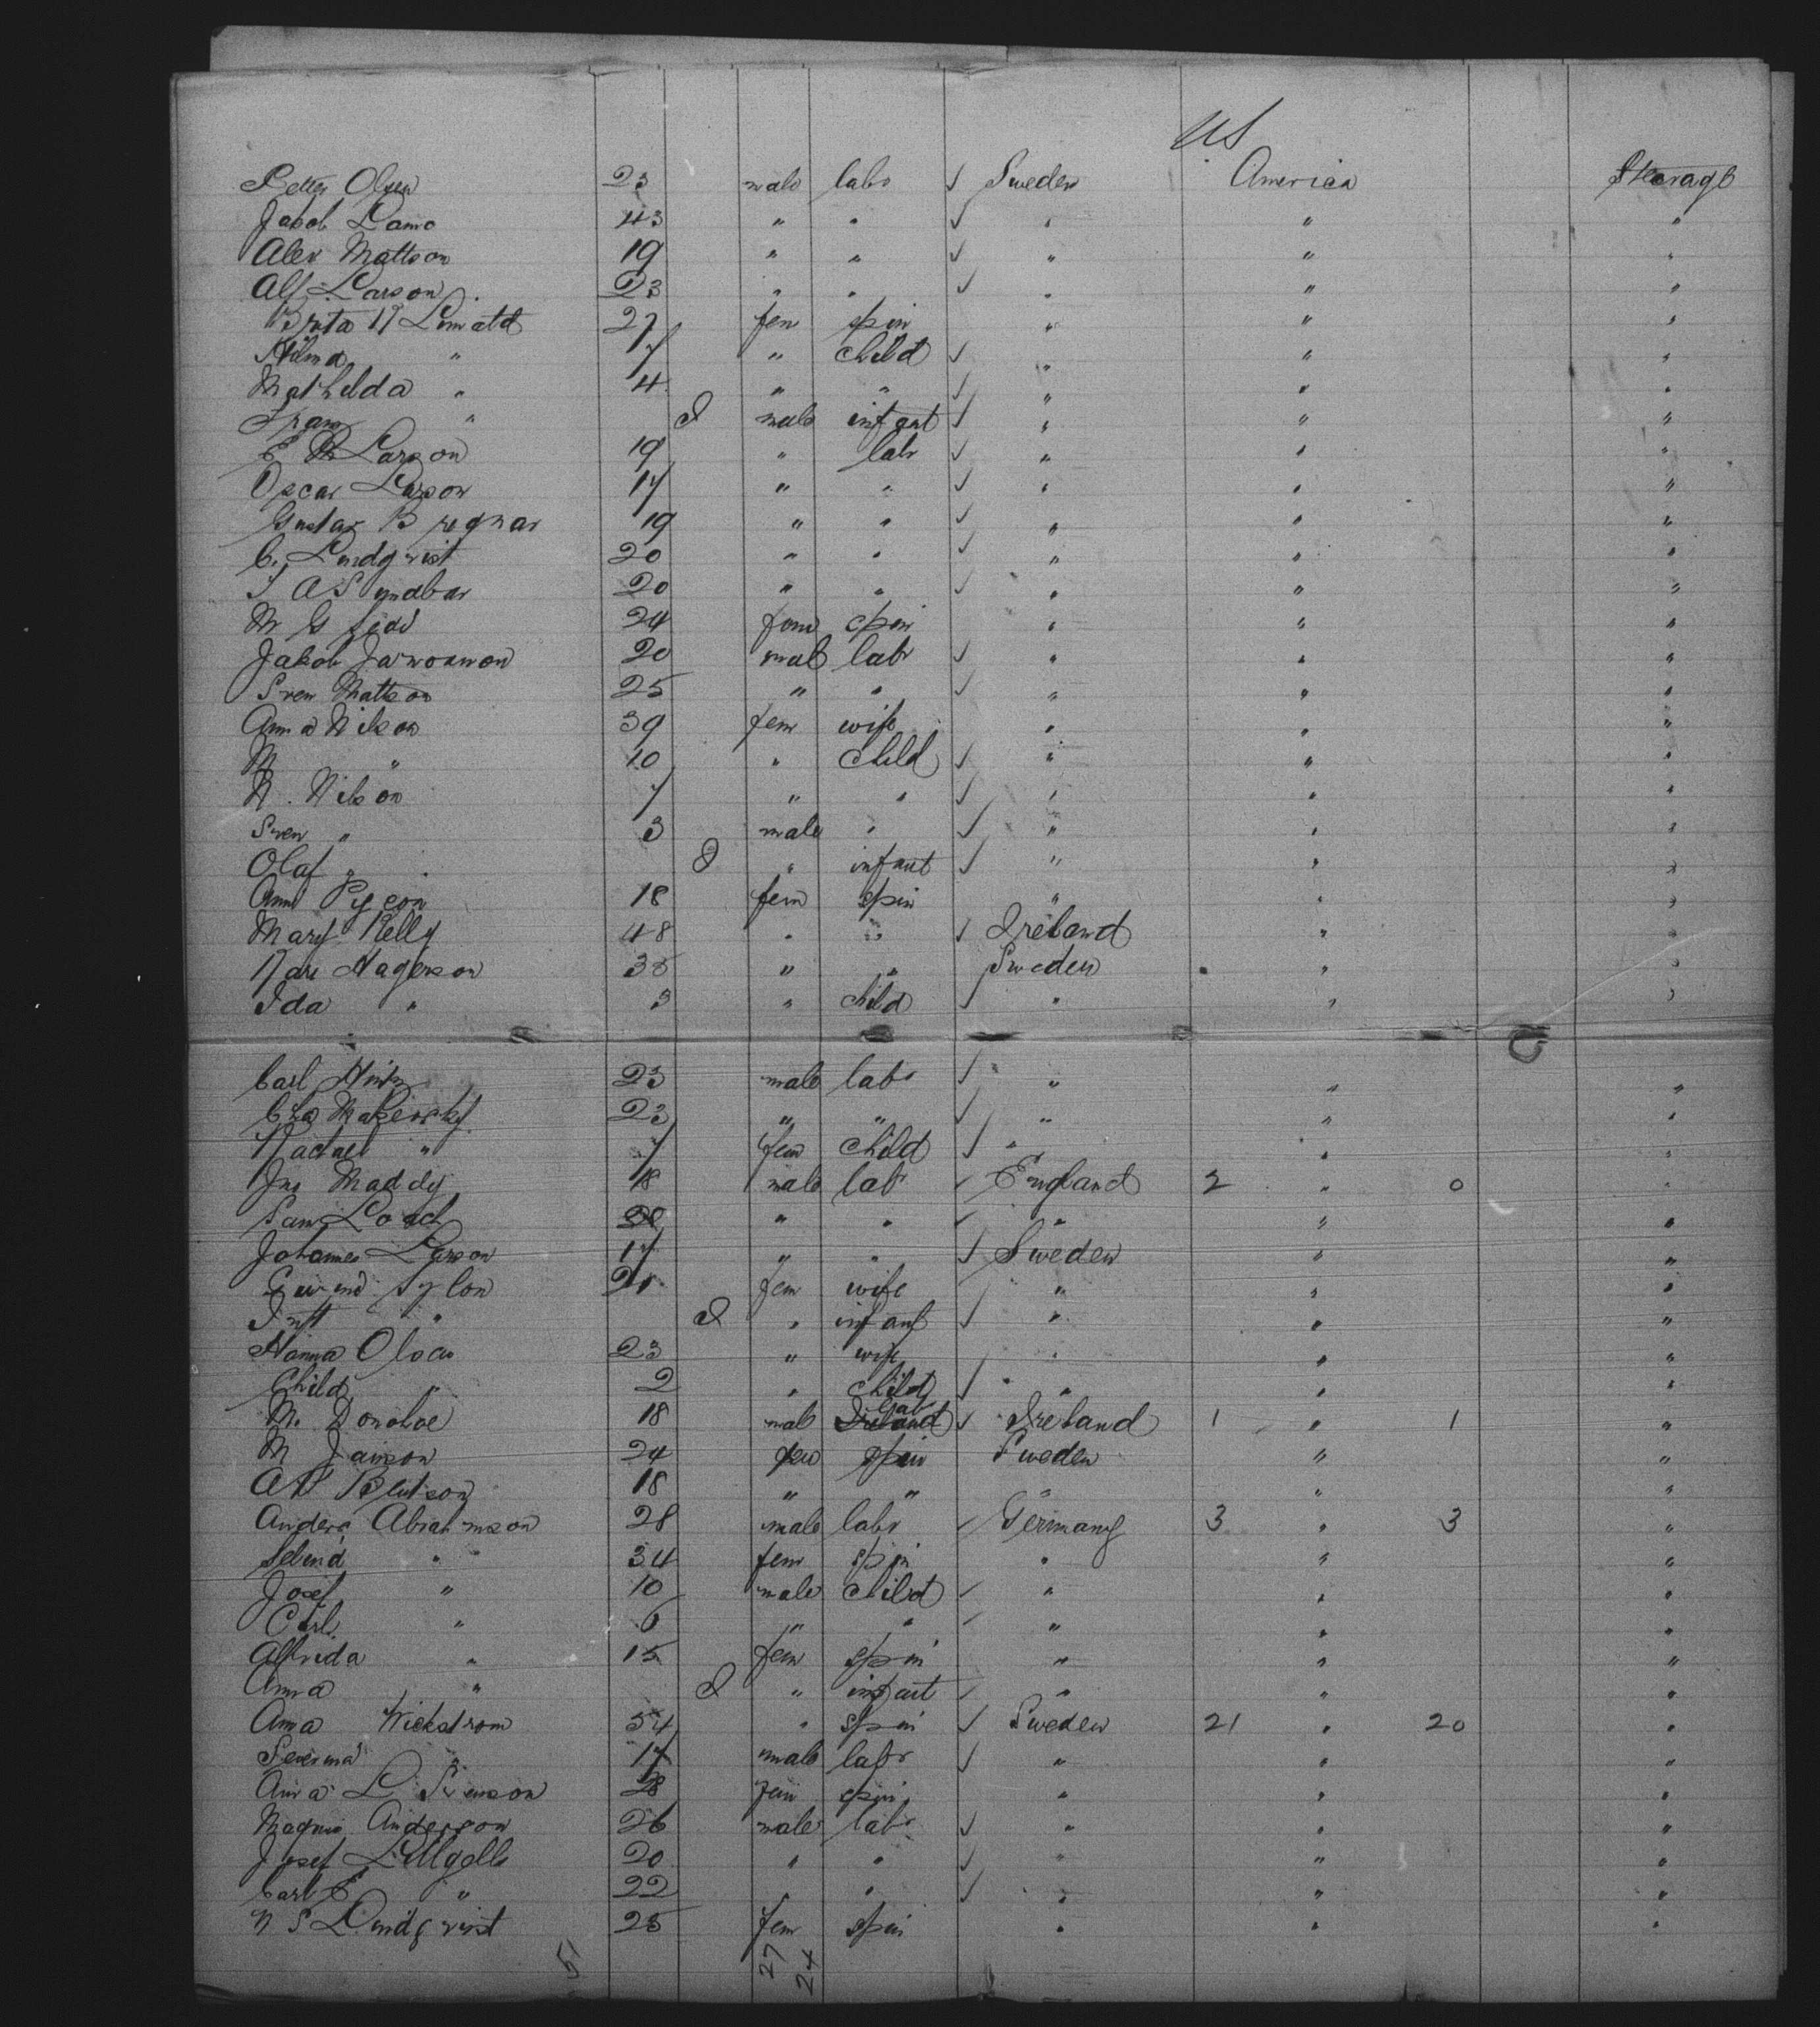 US
Petter Olsen 23 male labr ✓ Sweden America Steerage
Jakob Lamo 43 " " ✓ " " "
Alex Mattson 19 " " ✓ " " "
Alf Larson 23 " " ✓ " " "
Brita 27 fem spin " " "
Hilma " 7 " child ✓ " " "
Mathilda " 4 " " ✓ " " "
Franz " male infant ✓ " " "
E Larson 19 " labr ✓ " " "
Oscar Larson 17 " " ✓ " " "
Gustav 19 " " ✓ " " "
C. Lundqvist 20 " " ✓ " " "
20 " " ✓ " " "
M G 24 fem spin " " "
Jakob 20 male labr ✓ " " "
Sven Mattson 25 " " ✓ " " "
Anna Nilson 39 fem wife " " "
M " 10 " child ✓ " " "
N. Nilson 7 " " ✓ " " "
Sven " 3 male " ✓ " " "
Olaf " " infant ✓ " " "
Ann 18 fem spin " " "
Mary Kelly 48 " " ✓ Ireland " "
Hagerson 35 " " Sweden " "
Ida " 3 " child ✓ " " "
Carl 23 male labr ✓ " " "
23 " " ✓ " " "
Rachel " 7 fem child ✓ " " "
Jno Maddy 18 male labr ✓ England 2 " 0 "
Sam " " ✓ " " "
Johannes Larson 17 " " ✓ Sweden " "
fem wife " " "
Inft " " infant ✓ " " "
Hanna Olson 23 " wife " " "
Child " 2 " child ✓ " " "
M. Donohoe 18 male labr ✓ Ireland 1 " 1 "
M Janson 24 fem spin Sweden " "
18 " " " " "
Anders Abrahmson 28 male labr ✓ Germany 3 " 3 "
" 34 fem spin " " "
Josef " 10 male child ✓ " " "
Carl " 6 " " ✓ " " "
Alfrida " 15 fem spin " " "
Anna " " infant ✓ " " "
Anna Wickstrom 54 " spin ✓ Sweden 21 " 20 "
" 17 male labr ✓ " " "
Anna L Svenson 28 fem spin " " "
Magnus Anderson 26 male labr ✓ " " "
Josef 20 " " ✓ " " "
Carl E " 22 " " ✓ " " "
N S Lundqvist 25 fem spin " " "
51 27 24